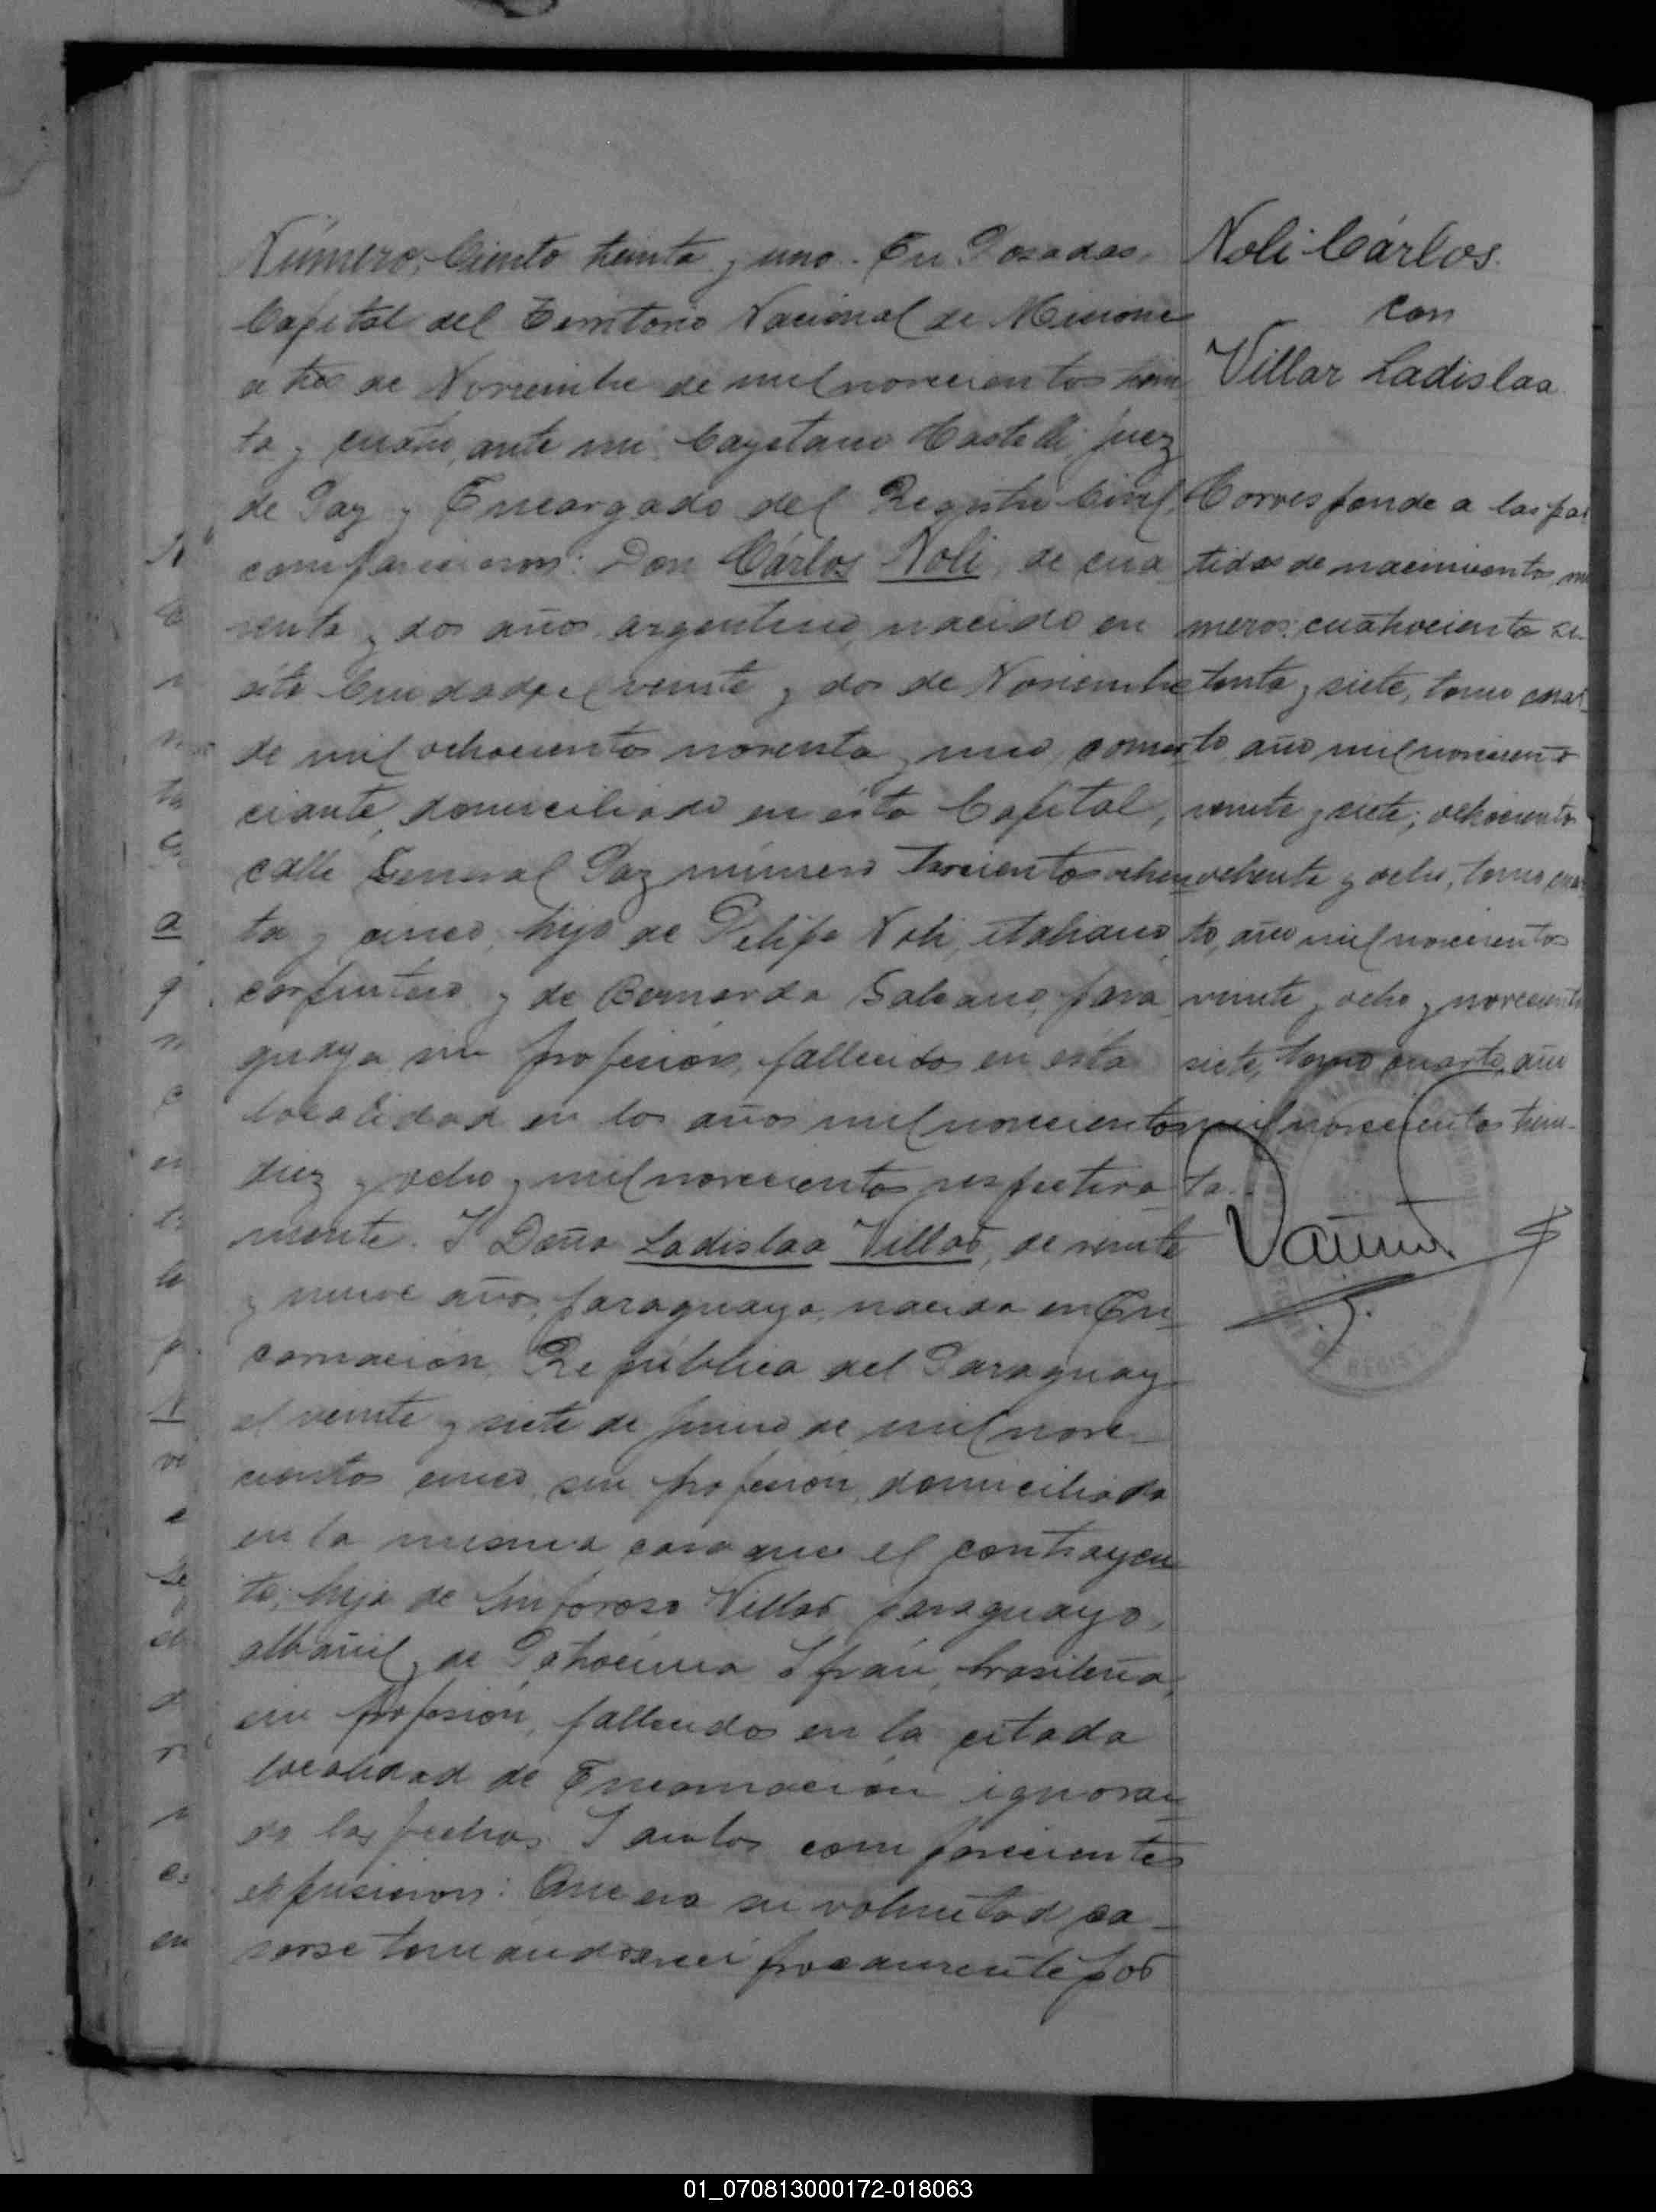 Número, Ciento treinta y uno. En Posadas,
Capital del Territorio Nacional de Misiones
a tres de Noviembre de mil novecientos trein
ta y cuatro, ante mi Cayetano Castelli, Juez
de Paz y Encargado del Registro Civil,
comparecieron: Don Cárlos Noli, de cua
renta y dos años, argentino, nacido en
ésta Ciudad el veinte y dos de Noviembre
de mil ochocientos noventa y uno, comer
ciante, domiciliado en ésta Capital,
calle General Paz número trescientos ochen
ta y cinco, hijo de Felipe Noli, italiano,
carpintero y de Bernarda Galeano, para
guaya, sin profesión, fallecidos en ésta
localidad en los años mil novecientos
diez y ocho y mil novecientos respectiva
mente. Y Doña Ladislaa Villar, de veinte
y nueve años, paraguaya, nacida en En_
carnación, República del Paraguay
el veinte y siete de Junio de mil nove_
cientos cinco, sin profesión, domiciliada
en la misma casa que el contrayen
te, hija de Sinforoso Villar, paraguayo,
albañil y de Patrocinia brasileña,
sin profesión, fallecidos en la citada
localidad de Encarnación ignoran_
do las fechas. Y ambos comparecientes
expusieron: Que era su voluntad ca_
sarse tomándose recíprocamente por
Noli Cárlos
con
Villar Ladislaa
Corresponde a las par
tidas de nacimientos nú
meros: cuatrocientos se_
tenta y siete, tomo cuar_
to, año mil novecientos
veinte y siete; ochocientos
ochenta y ocho, tomo cuar
to, año mil novecientos
veinte y ocho y novecientos
siete, tomo cuarto, año
mil novecientos trein_
ta.